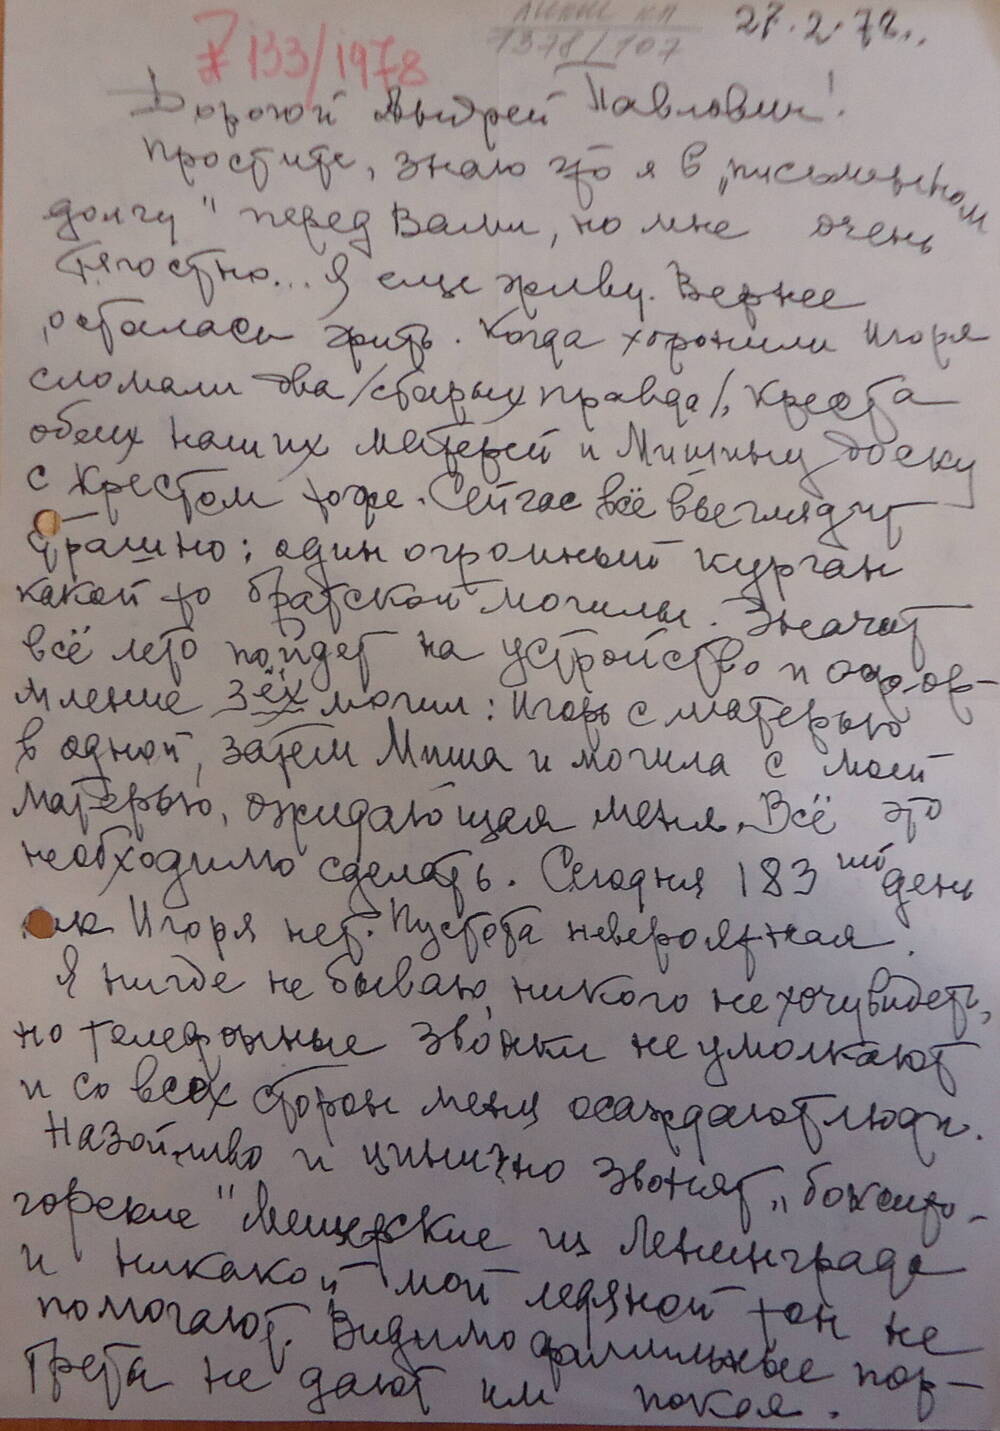 133/1978
1378/107
27.2.78..
Дорогой Андрей Павлович!
Простите, знаю что я в „письменном
долгу" перед Вами, но мне очень
тягостно... Я еще живу. Вернее
осталась жить. Когда хоронили Игоря
сломали два /старых правда/, Креста
обеих наших матерей и Мишину доску
с Крестом тоже. Сейчас всё выглядит
страшно: один огромный курган
какой то братской могилы. Значит
всё лето пойдет на устройство и офор-
мление 3ёх могил: Игорь с матерью
в одной, затем Миша и могила с моей
матерью, ожидающая меня. Всё это
необходимо сделать. Сегодня 183ий день
как Игоря нет. Пустота невероятная.
Я нигде не бываю, никого не хочу видеть,
но телефонные звонки не умолкают
и со всех сторон меня осаждают люди.
Назойливо и цинично звонят „боксито-
горские" Мещерские из Ленинграда
и никакой мой ледяной тон не
помогают. Видимо фамильные пор-
трета не дают им покоя.